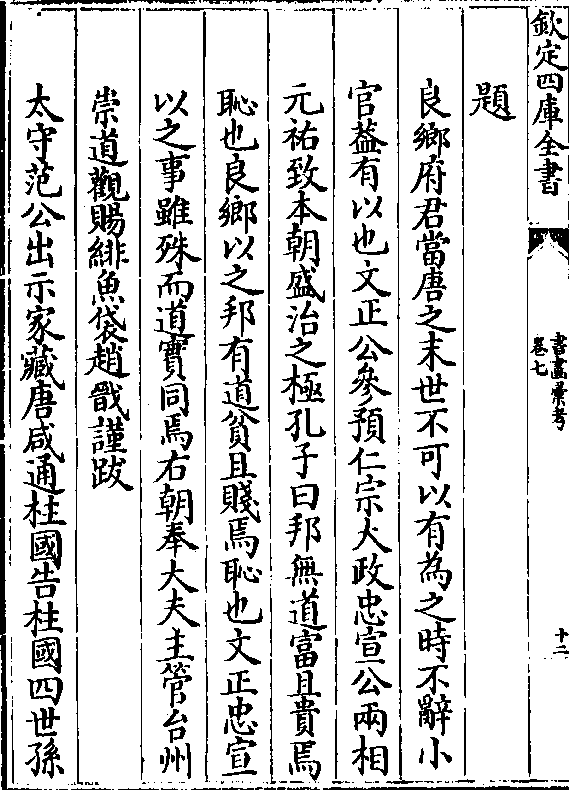 欽定四庫全書
書畫彙考
卷七
十二
題
良鄉府君當唐之末世不可以有為之時不辭小
官葢有以也文正公參預仁宗大政忠宣公兩相
元祐致本朝盛治之極孔子曰邦無道富且貴焉
恥也良鄉以之邦有道貧且賤焉恥也文正忠宣
以之事雖殊而道實同焉右朝奉大夫主管台州
崇道觀賜緋魚袋趙戩謹跋
太守范公出示家藏唐咸通柱國告柱國四世孫